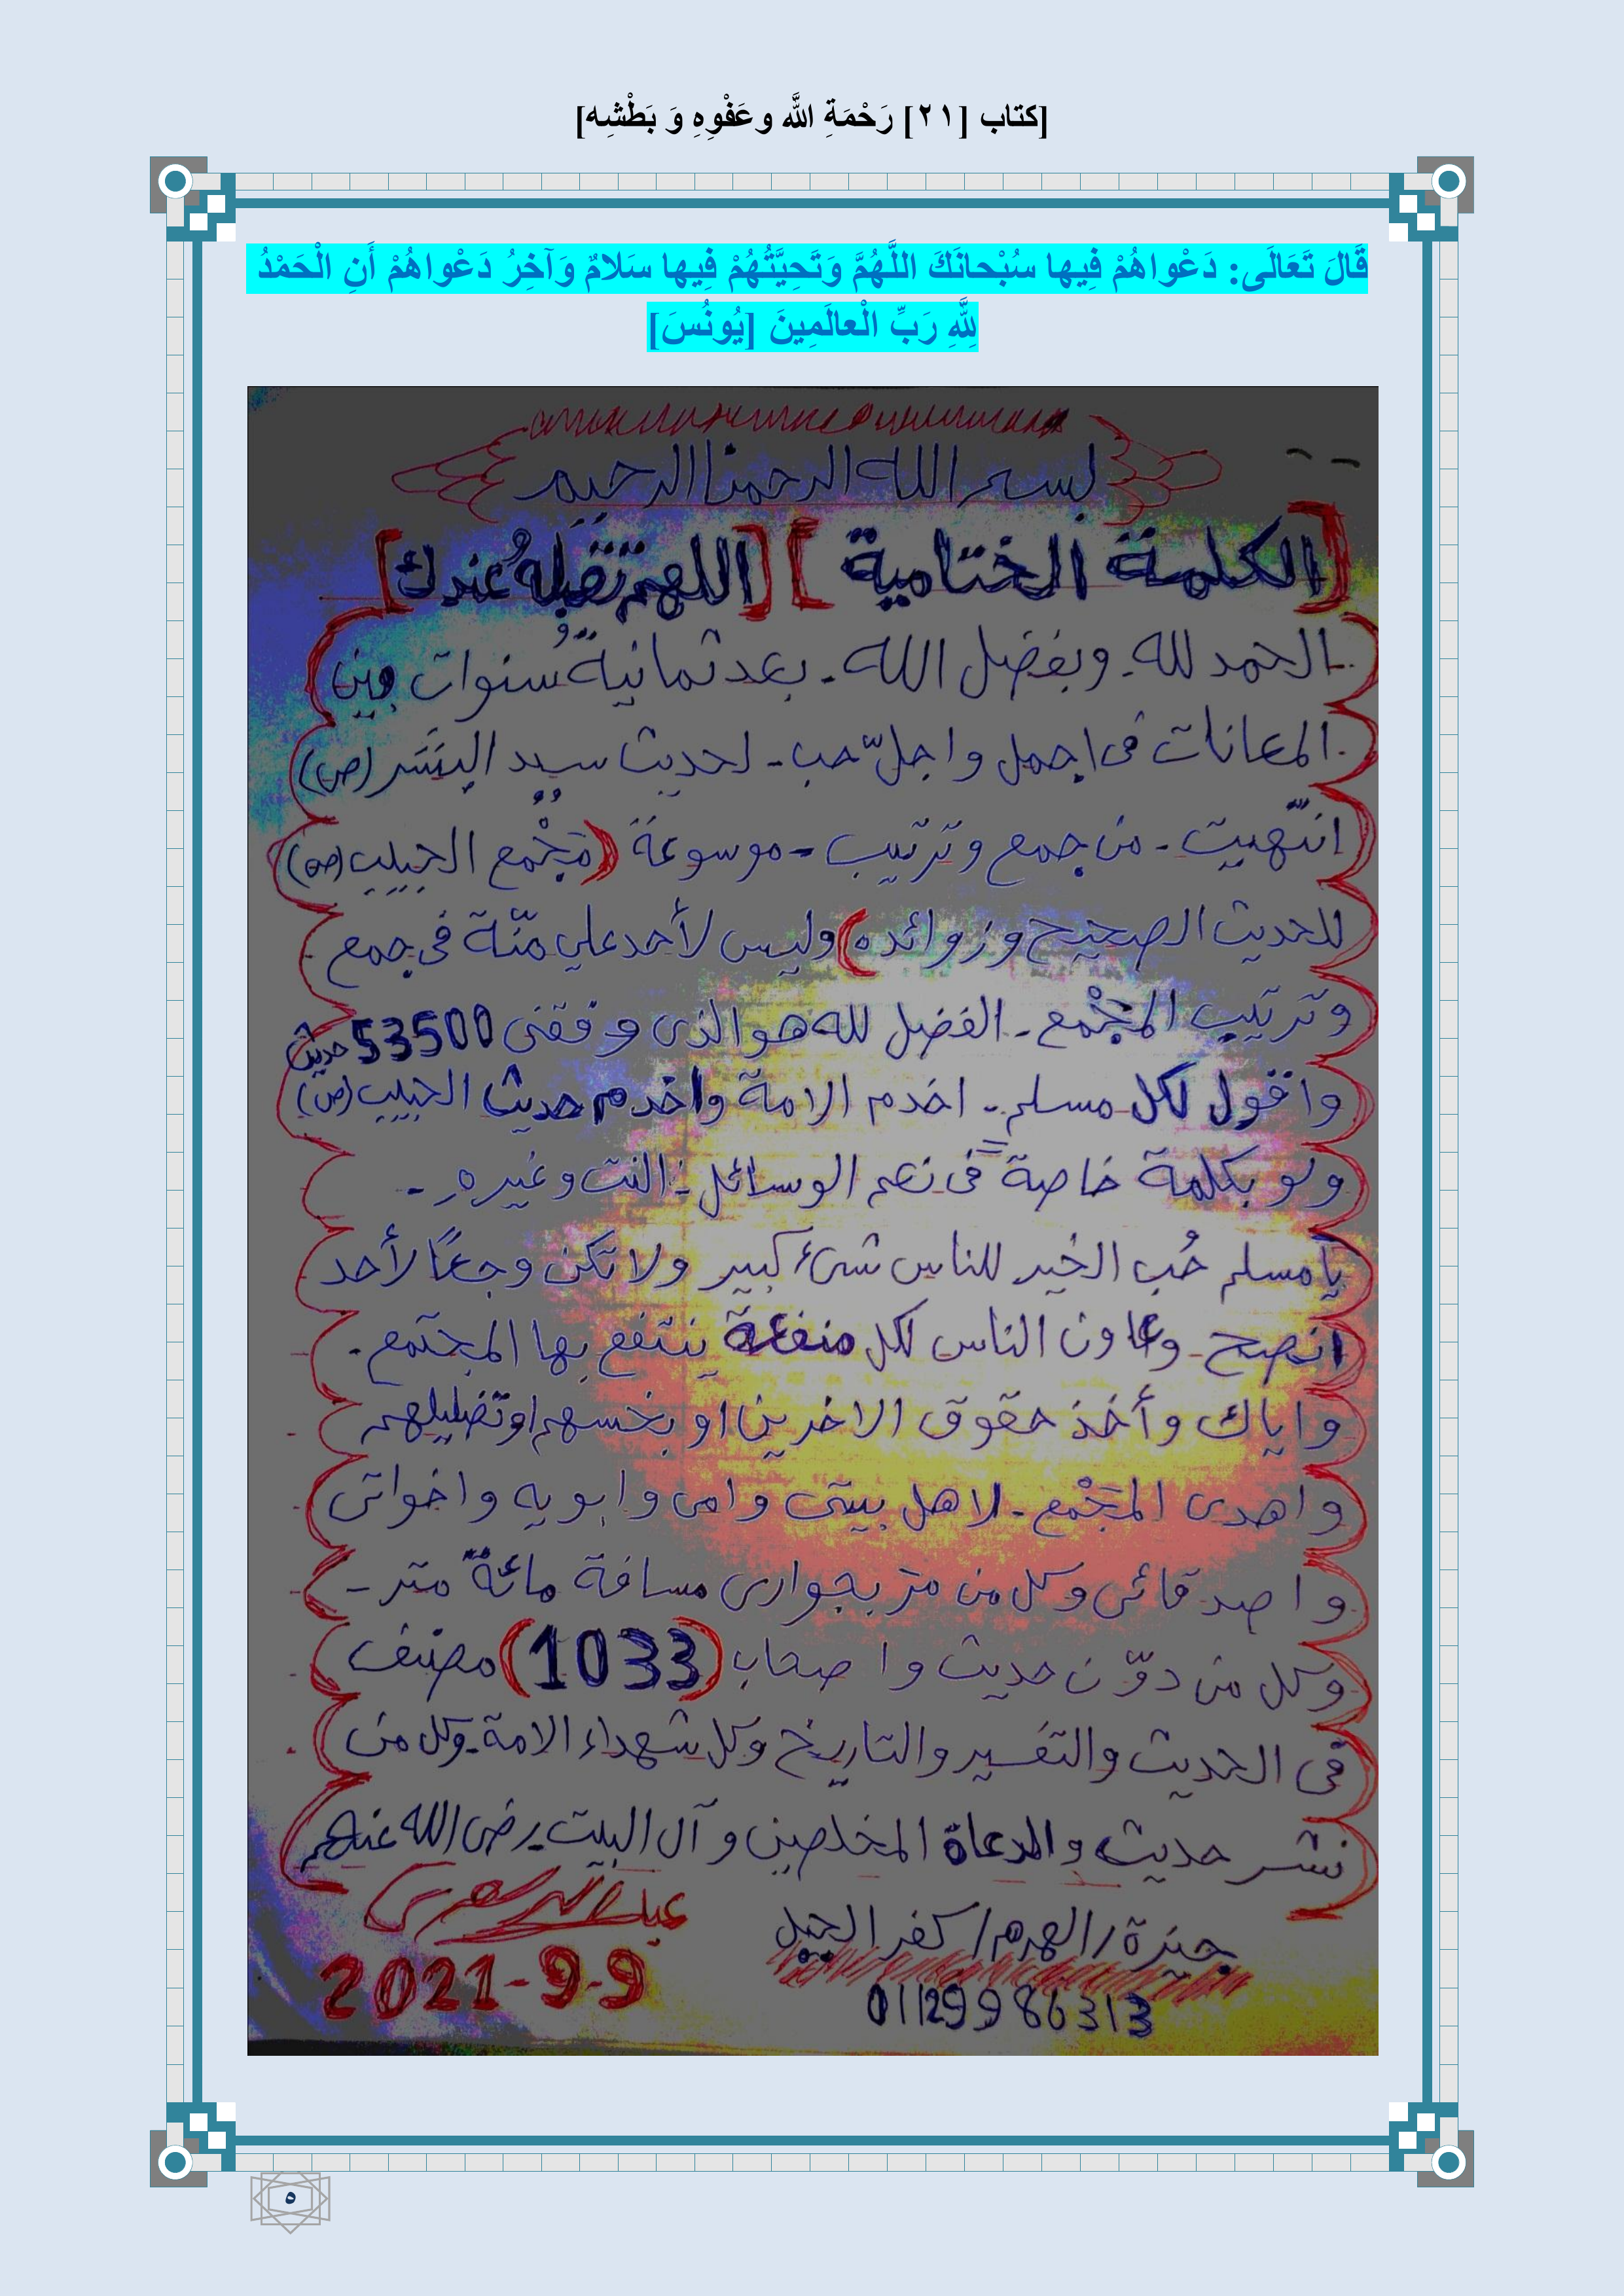 [كتاب [٢١] رَحْمَةِ اللَّه وعَفْوِهِ وَ بَطْشِه]
قَالَ تَعَالَى: دَعْواهُمْ فِيها سُبْحانَكَ اللَّهُمَّ وَتَحِيَّتُهُمْ فِيها سَلامٌ وَآخِرُ دَعْواهُمْ أَنِ الْحَمْدُ
لِلَّهِ رَبِّ الْعالَمِينَ [يُونُسَ]
بسم الله الرحمن الرحيم
[الكلمة الختامية] [اللهم تقبله عندك]
الحمد لله - وبفضل الله - بعد ثمانية سنوات من
المعانات فى اجمل واجلّ حب - لحديث سيد البشر (ص)
انتهيت - من جمع وترتيب - موسوعة (مَجْمع الحبيب (ص)
للحديث الصحيح وزوائده) وليس لأحد علي منّة فى جمع
وترتيب المجْمع - الفضل لله هو الذى وفقنى 53500 حديث
واقول لكل مسلم - اخدم الامة واخدم حديث الحبيب (ص)
ولو بكلمة خاصة فى نعم الوسائل: النت وغيره -
يا مسلم حُب الخير للناس شىء كبير ولا تكن وجعًا لأحد
انصح - وعاون الناس لكل منفعة ينتفع بها المجتمع -
واياك وأخذ حقوق الاخرين او بخسهم او تضليلهم
واهدى المجْمع - لاهل بيتى وامى وابويه واخواتى
واصدقائى وكل من مرّ بجوارى مسافة مائة متر -
وكل من دوّن حديث واصحاب (1033) مصنف
فى الحديث والتفسير والتاريخ وكل شهداء الامة - وكل من
نشر حديث والدعاة المخلصين وآل البيت رضى الله عنهم
جيزة / الهرم / كفر الجبل
01129986313
2021-9-9
٥